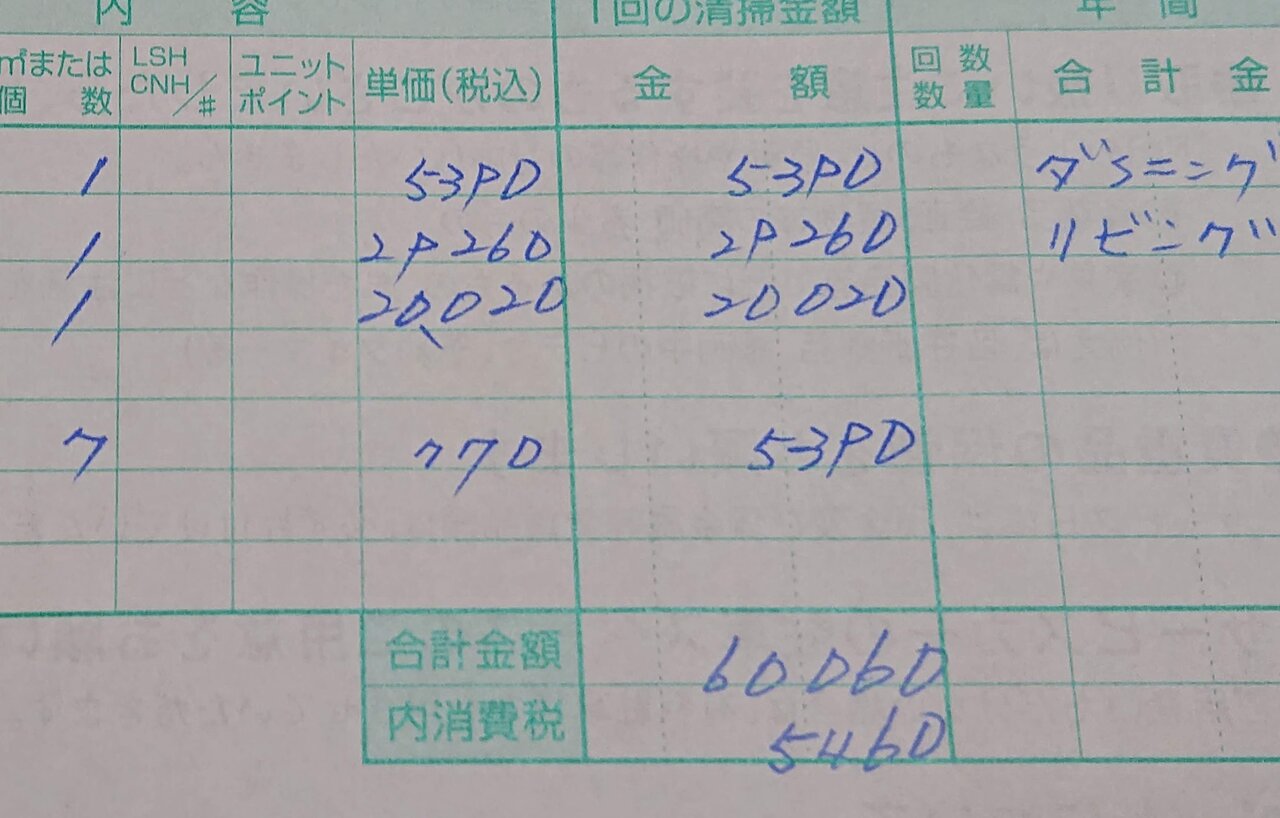 内 容 1回の清掃金額 年 間
㎡または個 数 LSH CNH/♯ ユニットポイント 単価(税込) 金 額 回数 数量 合 計 金
1 5390 5390 ダイニング
1 29260 29260 リビング
1 20020 20020
7 770 5390
合計金額 60060
内消費税 5460